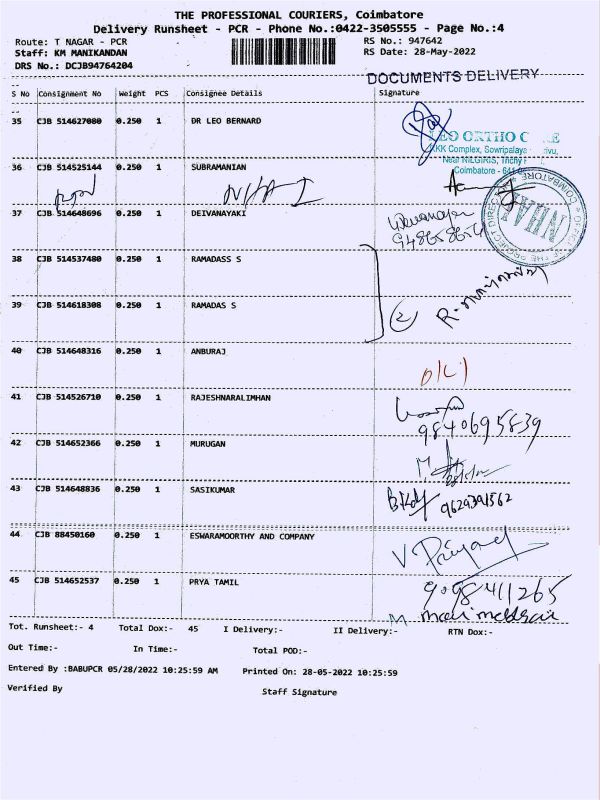 THE PROFESSIONAL COURIERS, Coimbatore
Delivery Runsheet - PCR - Phone No.:0422-3505555 - Page No.:4
Route: T NAGAR - PCR RS No.: 947642
Staff: KM MANIKANDAN RS Date: 28-May-2022
DRS No.: DCJB94764204
DOCUMENTS DELIVERY
S No Consignment No Weight PCS Consignee Details Signature
35 CJB 514627080 0.250 1 DR LEO BERNARD
LEO ORTHO
KK Complex, Sowripalaya
Near NILGIRIS, Trichy
Coimbatore - 641
36 CJB 514525144 0.250 1 SUBRAMANIAN
NHAI
37 CJB 514648696 0.250 1 DEIVANAYAKI
COIMBATORE
OFFICE OF THE PROJECT DIRECTOR
NHAI
38 CJB 514537480 0.250 1 RAMADASS S
39 CJB 514618308 0.250 1 RAMADAS S
2
40 CJB 514648316 0.250 1 ANBURAJ
41 CJB 514526710 0.250 1 RAJESHNARALIMHAN
9840695839
42 CJB 514652366 0.250 1 MURUGAN
43 CJB 514648836 0.250 1 SASIKUMAR
9629391562
44 CJB 88450160 0.250 1 ESWARAMOORTHY AND COMPANY
V Priyanad
45 CJB 514652537 0.250 1 PRYA TAMIL
9098411265
Tot. Runsheet:- 4 Total Dox:- 45 I Delivery:- II Delivery:- RTN Dox:-
Out Time:- In Time:- Total POD:-
Entered By :BABUPCR 05/28/2022 10:25:59 AM Printed On: 28-05-2022 10:25:59
Verified By Staff Signature